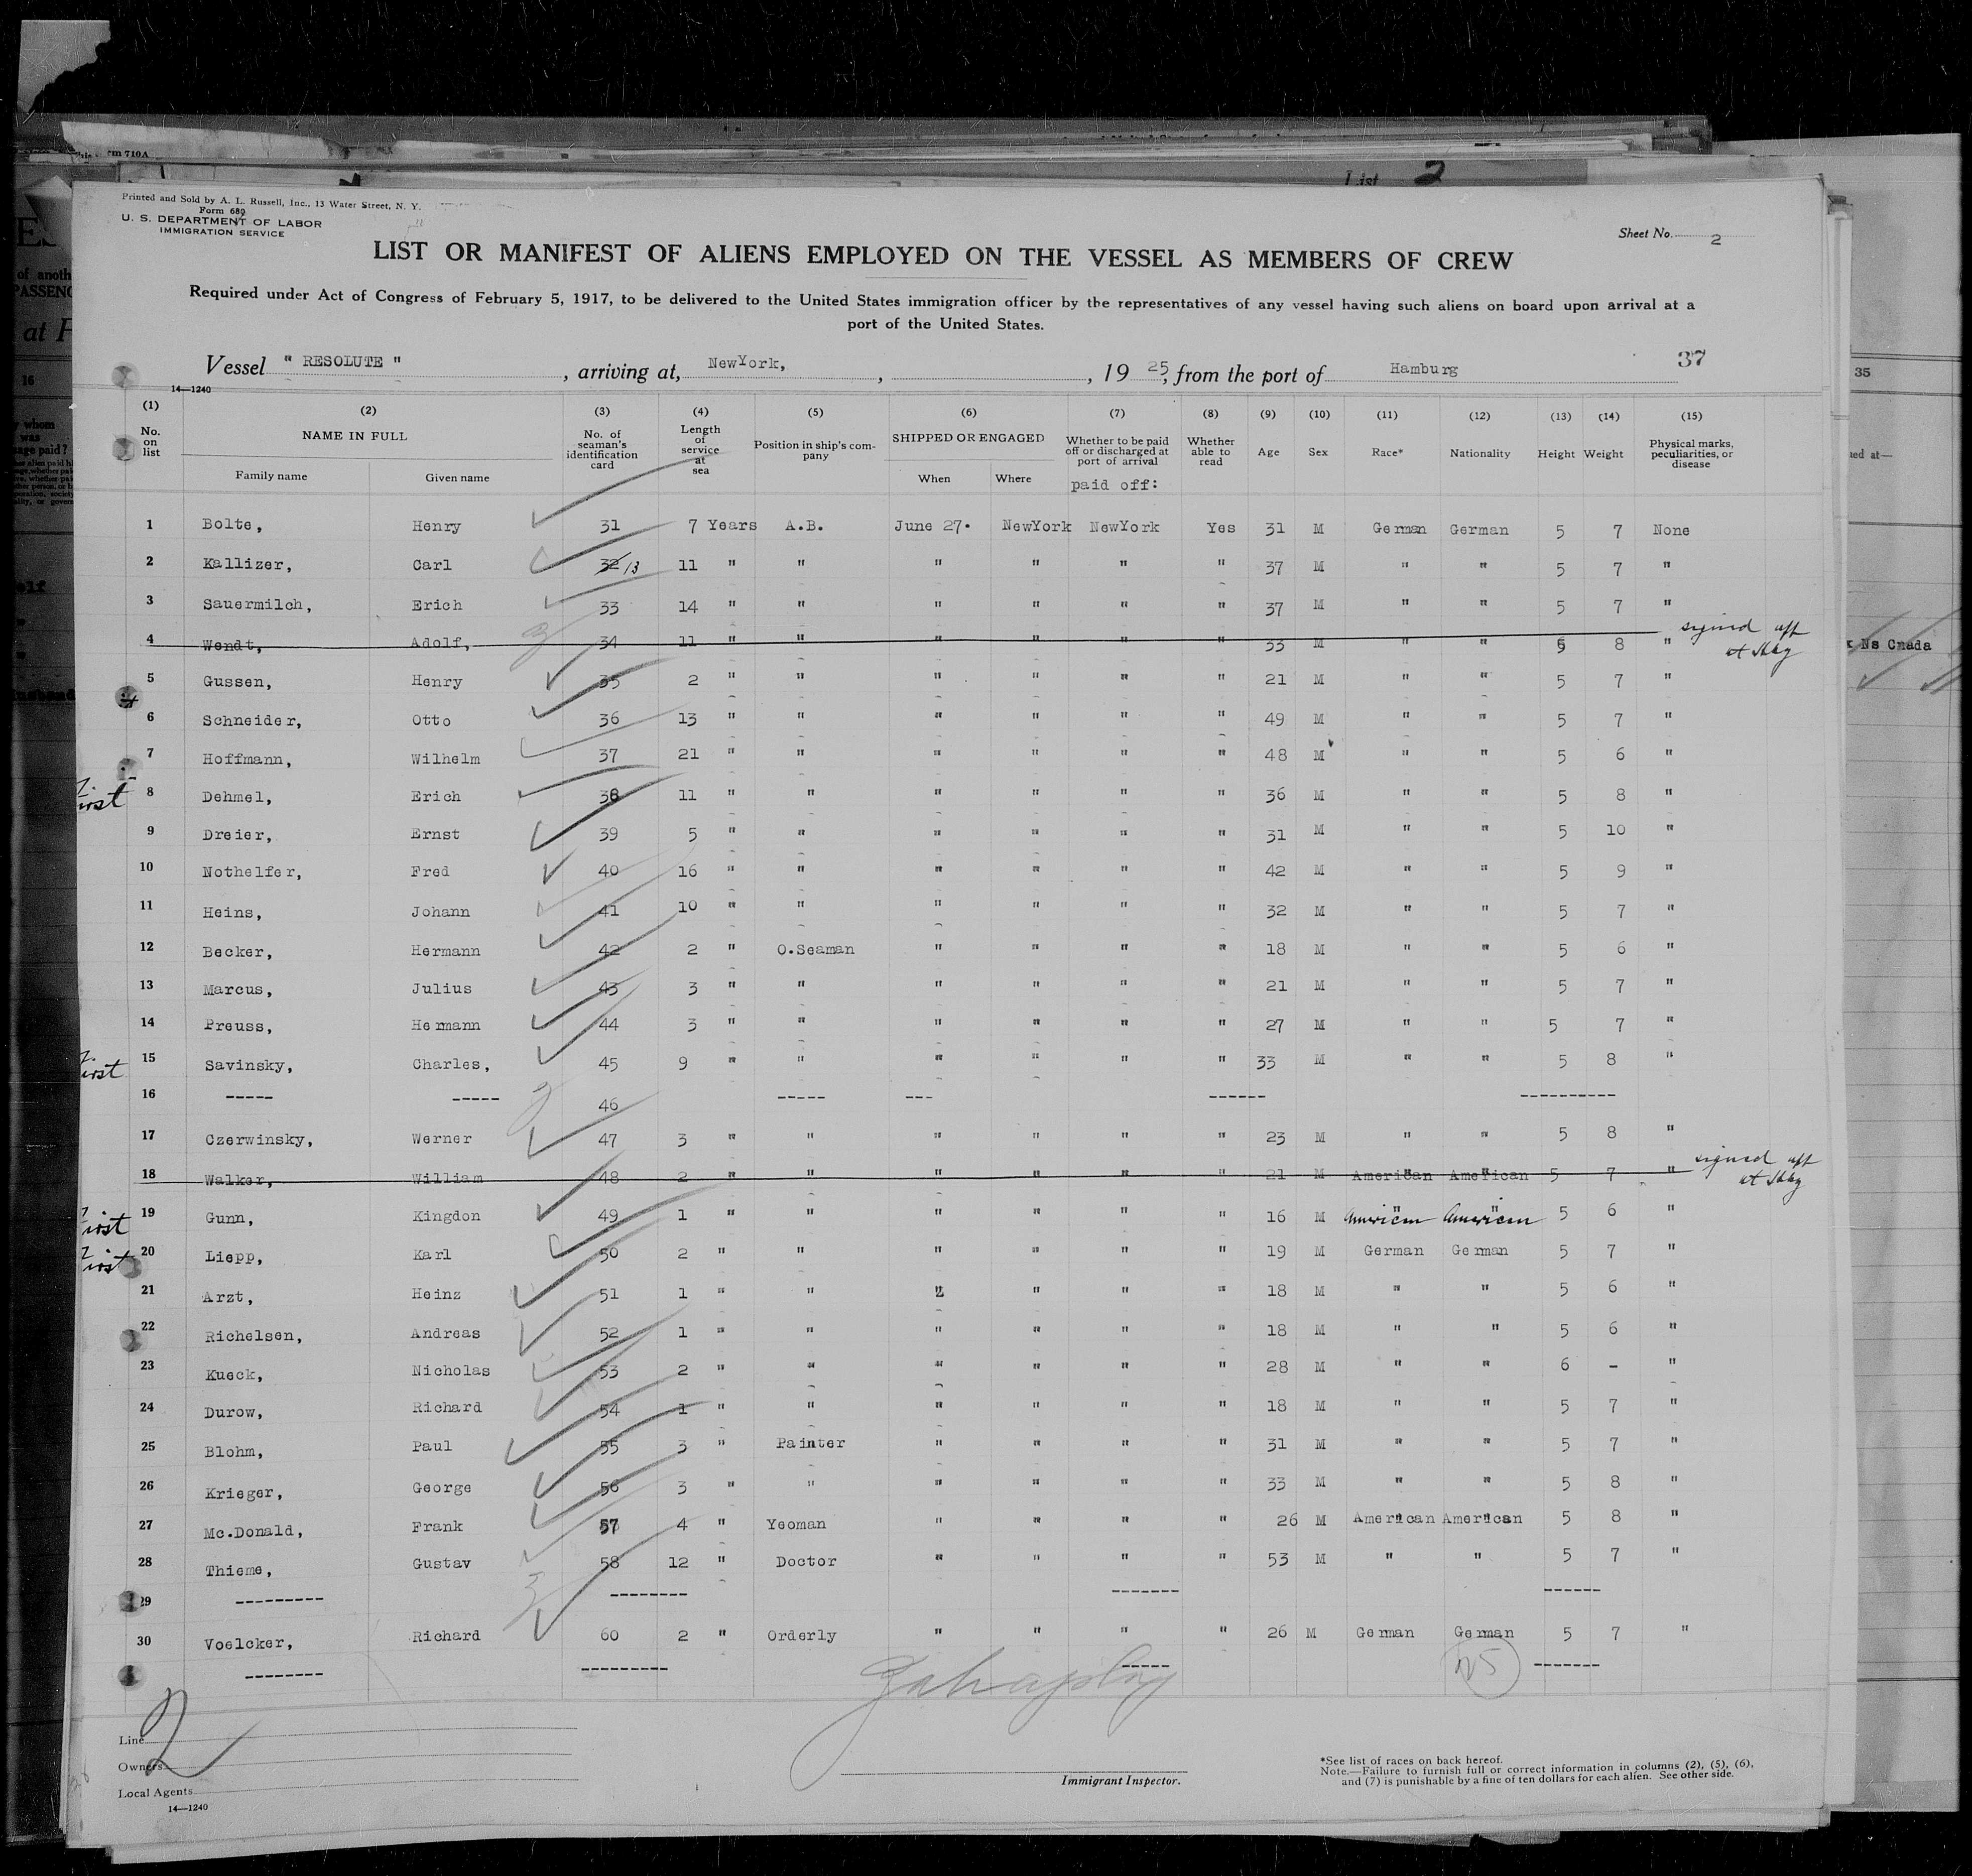 List 2
Printed and Sold by A. L. Russell, Inc., 13 Water Street, N. Y.
Form 689
U. S. DEPARTMENT OF LABOR
IMMIGRATION SERVICE
Sheet No. 2
LIST OR MANIFEST OF ALIENS EMPLOYED ON THE VESSEL AS MEMBERS OF CREW
Required under Act of Congress of February 5, 1917, to be delivered to the United States immigration officer by the representatives of any vessel having such aliens on board upon arrival at a
port of the United States.
Vessel " RESOLUTE " , arriving at, NewYork, , , 19 25, from the port of Hamburg 37
14—1240
(1) (2) (3) (4) (5) (6) (7) (8) (9) (10) (11) (12) (13) (14) (15)
No. on list NAME IN FULL Family name Given name No. of seaman's identification card Length of service at sea Position in ship's company SHIPPED OR ENGAGED When Where Whether to be paid off or discharged at port of arrival Whether able to read Age Sex Race* Nationality Height Weight Physical marks, peculiarities, or disease
paid off:
1 Bolte, Henry 31 7 Years A.B. June 27. NewYork NewYork Yes 31 M German German 5 7 None
2 Kallizer, Carl 32 13 11 " " " " " " 37 M " " 5 7 "
3 Sauermilch, Erich 33 14 " " " " " " 37 M " " 5 7 "
4 Wendt, Adolf, 34 11 " " " " " " 33 M " " 5 8 " signed off at Hbg
5 Gussen, Henry 35 2 " " " " " " 21 M " " 5 7 "
6 Schneider, Otto 36 13 " " " " " " 49 M " " 5 7 "
7 Hoffmann, Wilhelm 37 21 " " " " " " 48 M " " 5 6 "
First 8 Dehmel, Erich 38 11 " " " " " " 36 M " " 5 8 "
9 Dreier, Ernst 39 5 " " " " " " 31 M " " 5 10 "
10 Nothelfer, Fred 40 16 " " " " " " 42 M " " 5 9 "
11 Heins, Johann 41 10 " " " " " " 32 M " " 5 7 "
12 Becker, Hermann 42 2 " O.Seaman " " " " 18 M " " 5 6 "
13 Marcus, Julius 43 3 " " " " " " 21 M " " 5 7 "
14 Preuss, Hermann 44 3 " " " " " " 27 M " " 5 7 "
First 15 Savinsky, Charles, 45 9 " " " " " " 33 M " " 5 8 "
16 ----- ----- 46 ----- --- ------ ----------
17 Czerwinsky, Werner 47 3 " " " " " " 23 M " " 5 8 "
18 Walker, William 48 2 " " " " " " 21 M American American 5 7 " signed off at Hbg
First 19 Gunn, Kingdon 49 1 " " " " " " 16 M American American 5 6 "
First 20 Liepp, Karl 50 2 " " " " " " 19 M German German 5 7 "
21 Arzt, Heinz 51 1 " " " " " " 18 M " " 5 6 "
22 Richelsen, Andreas 52 1 " " " " " " 18 M " " 5 6 "
23 Kueck, Nicholas 53 2 " " " " " " 28 M " " 6 - "
24 Durow, Richard 54 1 " " " " " " 18 M " " 5 7 "
25 Blohm, Paul 55 3 " Painter " " " " 31 M " " 5 7 "
26 Krieger, George 56 3 " " " " " " 33 M " " 5 8 "
27 Mc.Donald, Frank 57 4 " Yeoman " " " " 26 M American American 5 8 "
28 Thieme, Gustav 58 12 " Doctor " " " " 53 M " " 5 7 "
29 --------- -------- ------- ------
30 Voelcker, Richard 60 2 " Orderly " " " " 26 M German German 5 7 "
-------- --------- ----- -------
2
Line
Owners
Local Agents
14—1240
Immigrant Inspector.
*See list of races on back hereof.
Note.—Failure to furnish full or correct information in columns (2), (5), (6),
and (7) is punishable by a fine of ten dollars for each alien. See other side.